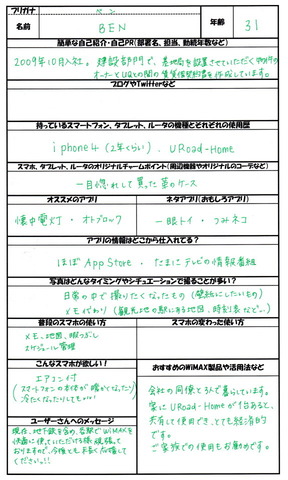 フリガナ ベン
名前 BEN 年齢 31
簡単な自己紹介・自己PR(部署名、担当、勤続年数など)
2009年10月入社。建設部門で、基地局を設置させていただく物件の
オーナーとUQとの間の賃貸借契約書を作成しています。
ブログやTwitterなど
持っているスマートフォン、タブレット、ルータの機種とそれぞれの使用歴
iphone4 (2年くらい)、URoad-Home
スマホ、タブレット、ルータのオリジナルチャームポイント(周辺機器やオリジナルのコーデなど)
一目惚れして買った革のケース
オススメのアプリ
懐中電灯・オトブロック
ネタアプリ(おもしろアプリ)
一眼トイ・つみネコ
アプリの情報はどこから仕入れてる?
ほぼ App Store、たまにテレビの情報番組
写真はどんなタイミングやシチュエーションで撮ることが多い?
日常の中で撮りたくなったもの (壁紙にしたいもの)
メモ代わり (観光地の駅にある地図、時刻表など…)
普段のスマホの使い方
メモ、地図、暇つぶし
スケジュール管理
スマホの変わった使い方
こんなスマホが欲しい!
エアコン付
(スマートフォンの本体が暖かくなったり
冷たくなったりしてもいい)
ユーザーさんへのメッセージ
現在、地下鉄を含め、各駅でWiMAXを
快適に使っていただける様 頑張って
おりますので、今後とも末長く応援して
ください!!
おすすめのWiMAX製品や活用法など
会社の同僚と3人で暮らしています。
家に URoad-Homeが1台あると、
共有して使用でき、とても経済的
です。
ご家族での使用もお勧めです。